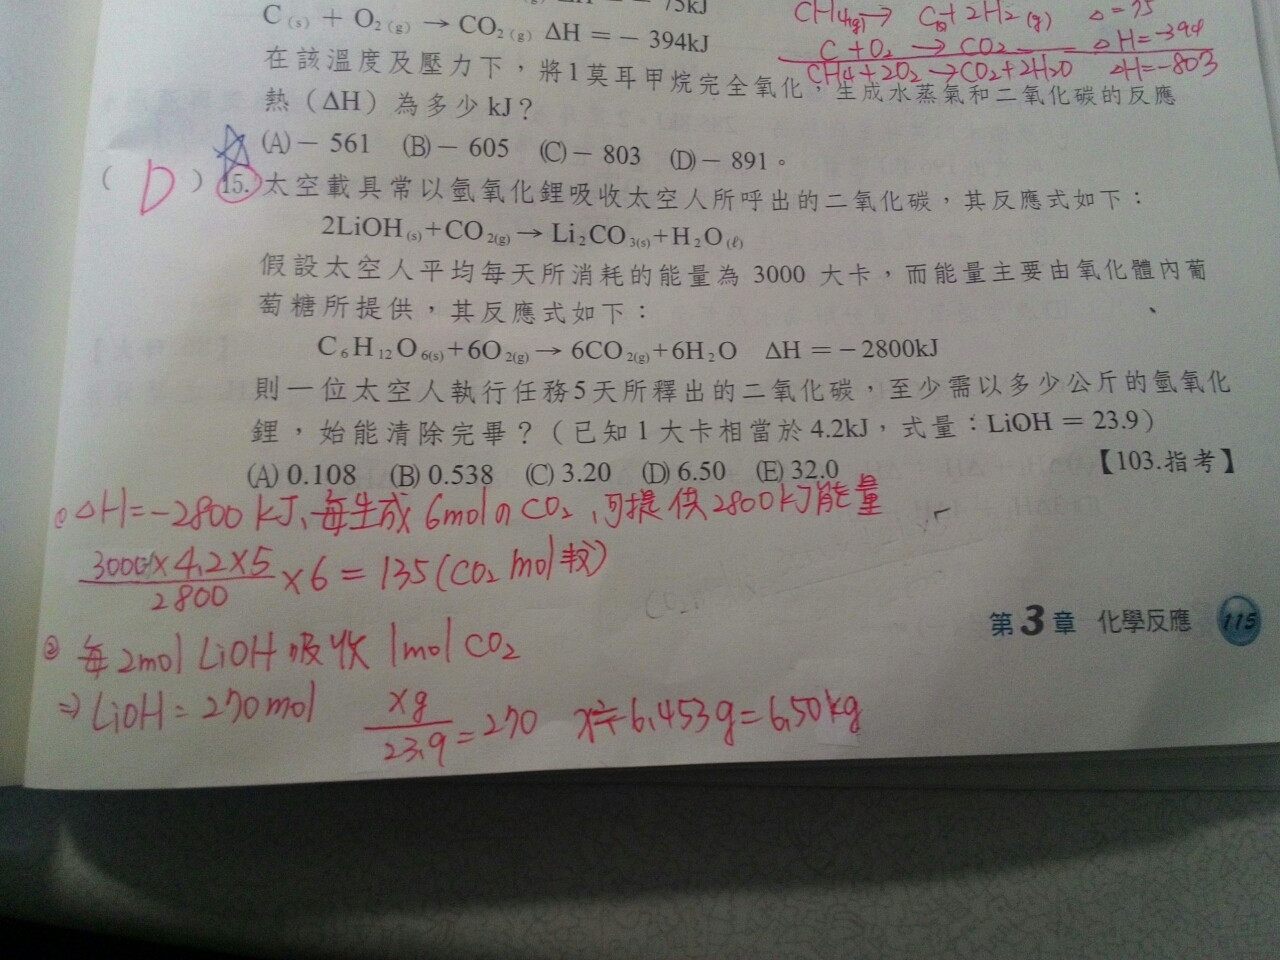 75kJ
C(s) + O2(g) → CO2(g) ΔH = − 394kJ
CH4(g) → C(s) + 2H2(g) Δ = 75
C + O2 → CO2 ΔH = -394
CH4 + 2O2 → CO2 + 2H2O ΔH = -803
在該溫度及壓力下，將1莫耳甲烷完全氧化，生成水蒸氣和二氧化碳的反應
熱（ΔH）為多少kJ？
(A)− 561 (B)− 605 (C)− 803 (D)− 891。
( D ) 15. 太空載具常以氫氧化鋰吸收太空人所呼出的二氧化碳，其反應式如下：
2LiOH(s)+CO2(g) → Li2CO3(s)+H2O(ℓ)
假設太空人平均每天所消耗的能量為 3000 大卡，而能量主要由氧化體內葡
萄糖所提供，其反應式如下：
C6H12O6(s)+6O2(g) → 6CO2(g)+6H2O ΔH = − 2800kJ
則一位太空人執行任務5天所釋出的二氧化碳，至少需以多少公斤的氫氧化
鋰，始能清除完畢？（已知1大卡相當於4.2kJ，式量：LiOH = 23.9）
(A) 0.108 (B) 0.538 (C) 3.20 (D) 6.50 (E) 32.0 【103.指考】
① ΔH = -2800 kJ，每生成 6mol の CO2，可提供2800kJ能量
3000×4.2×5
2800 ×6 = 135 (CO2 mol數)
第3章 化學反應 115
② 每2mol LiOH 吸收 1mol CO2
⇒ LiOH = 270mol xg
23.9 = 270 x≒6.453g = 6.50kg